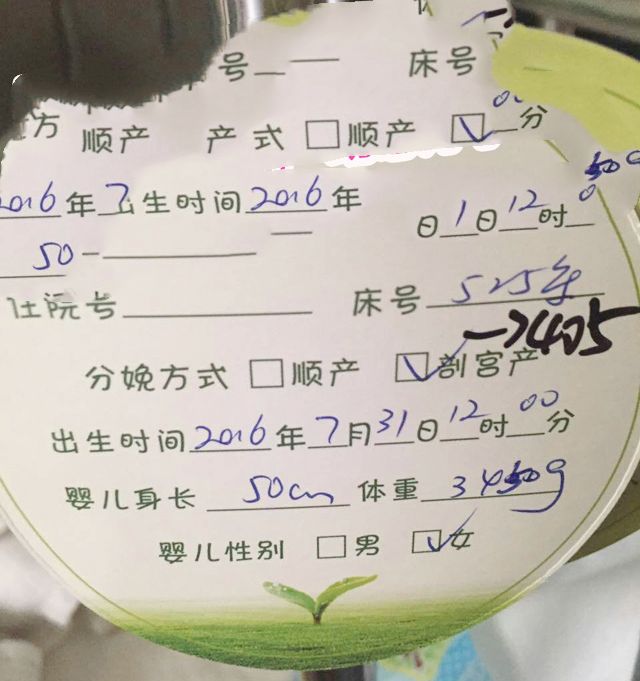 号 床号
方 顺产 产式 □顺产 ☑ 00分
2016年7 出生时间2016年 日1日12时0
50
住院号 床号525年
→405
分娩方式 □顺产 ☑剖宫产
出生时间2016年7月31日12时00分
婴儿身长 50cm 体重 3450g
婴儿性别 □男 ☑女